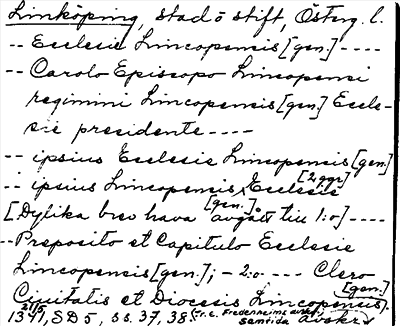 Linköping, stad o stift, Österg. l.
-- Ecclesie Lincopensis [gen.] ----
-- Carolo Episcopo Lincopensi
regimini Lincopensis [gen.] Eccle-
sie presidente ----
-- ipsius Ecclesie Lincopensis [gen.]
-- ipsius Lincopensis [gen.] Ecclesie [2 ggr]
[Dylika brev hava avgått till 1:o] ----
-- Preposito et Capitulo Ecclesie
Lincopensis [gen.]; - 2:o ---- Clero
Civitatis et Diocesis Lincopensis [gen.].
1341 21/5, SD 5, ss. 37, 38. samtida